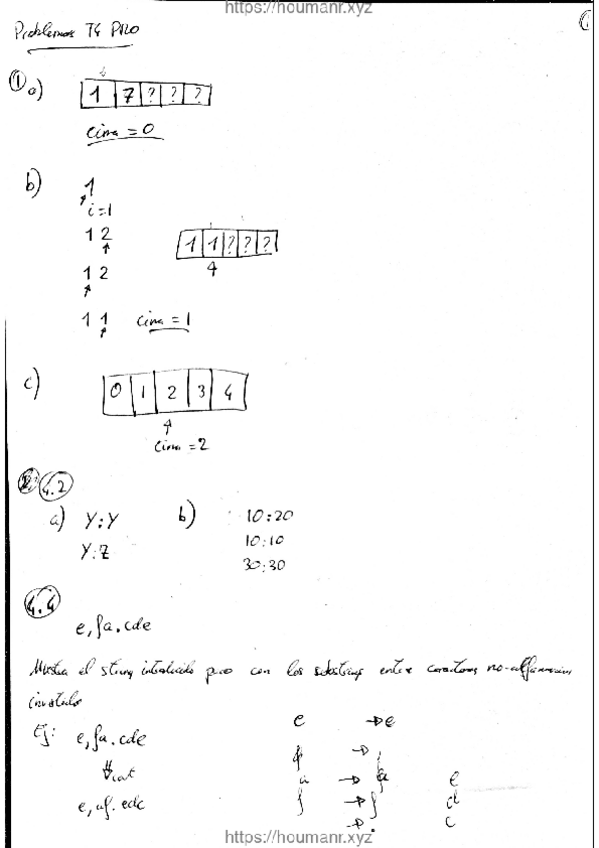 https://houmanr.xyz
Problemas T4 PRO
1
① a)
1 7 ? ? ?
cima = 0
b) 1
i=1
1 2
1 1 ? ? ?
1 2
1 1 cima = 1
c) 0 1 2 3 4
cima = 2
4.2
a) Y:Y b) 10:20
Y:Z 10:10
30:30
4.4
e, fa. cde
Muestra el string introducido pero con los substrings entre caracteres no-alfanuméricos
invertidos
Ej: e, fa. cde
e, af. edc
e → e
,
a → a e
f → f d
→ . c
https://houmanr.xyz